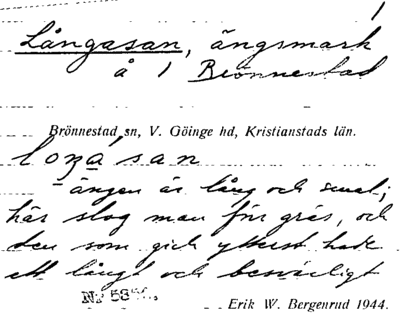 1
Långasan, ängsmark
å 1 Brönnestad
Brönnestad sn, V. Göinge hd, Kristianstads län.
loŋa san
ängen är lång och smal;
här slog man förr gräs, och
den som gick ytterst hade
ett långt och besvärligt
Erik W. Bergenrud 1944.